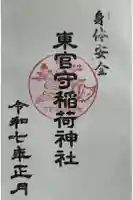 身体安全
東官守稲荷神社
令和七年正月